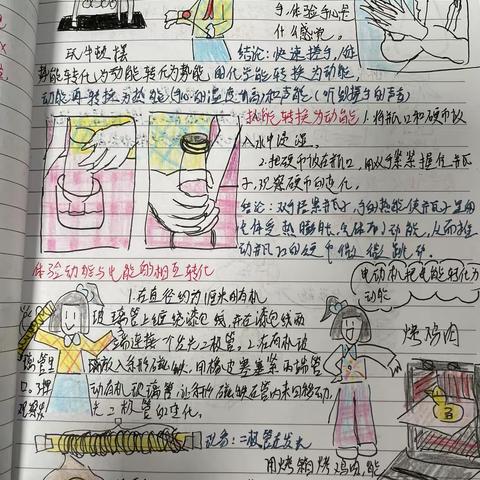 手.体验手心
什么感觉。
玩牛顿摆
结论:快速搓手,使
势能转化为动能,转化为势能,用化学能转换为动能,
动能再转换为热能(手心的温度升高)和声能(听到搓手的声音)
热能转换为动能
1.将瓶口和硬币放
入水中浸湿。
2.把硬币放在瓶口,用双手紧紧握住并瓦
子,观察硬币的变化。
结论:双手捂紧并瓦子,手的热能使并瓦子里的
气体受热膨胀,
动能,从而推
动并瓦口的硬币做
跳动。
体验动能与电能的相互转化
电动机把电能转化为
动能
1.在直径约为1厘米的有机
玻璃管上缠绕漆包线,并在漆包线两
端连接个发光二极管。2.在有机玻
璃管里
放入条形磁铁,用橡皮塞塞紧两端管
口。3.
动有机玻璃管,让条形磁铁在管内来回移动,
观察发
光二极管的变化。
烤鸡肉
现象:二极管发光
用烤箱烤鸡肉,能